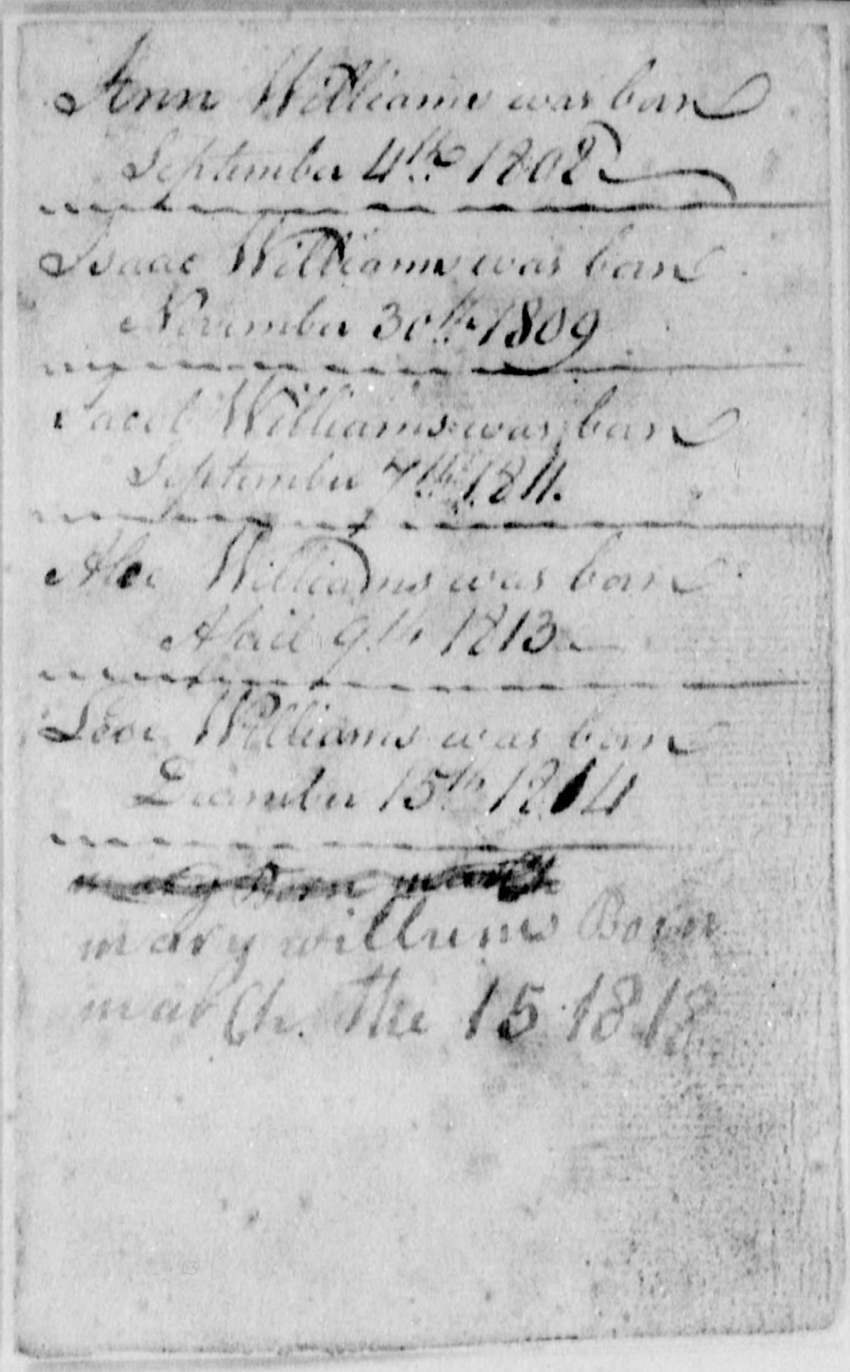 Ann Williams was born
September 4th 1808
Isaac Williams was born
November 30th 1809
Jacob Williams was born
September 7th 1811.
Williams was born
April 9th 1813
Williams was born
December 15th 1814
mary Born march
mary willums Born
march the 15 1818